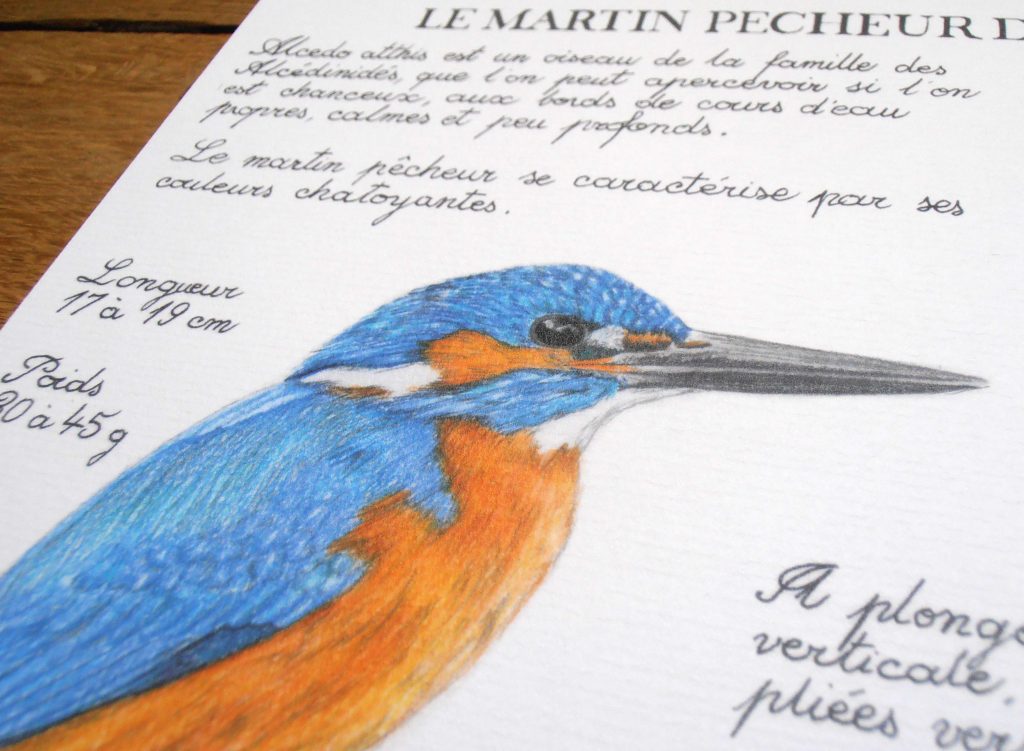 LE MARTIN PECHEUR D
Alcedo atthis est un oiseau de la famille des
Alcédinidés, que l'on peut apercevoir si l'on
est chanceux, aux bords de cours d'eau
propres, calmes et peu profonds.
Le martin pêcheur se caractérise par ses
couleurs chatoyantes.
Longueur
17 à 19 cm
Poids
30 à 45 g
A plonge
verticale.
pliées ver